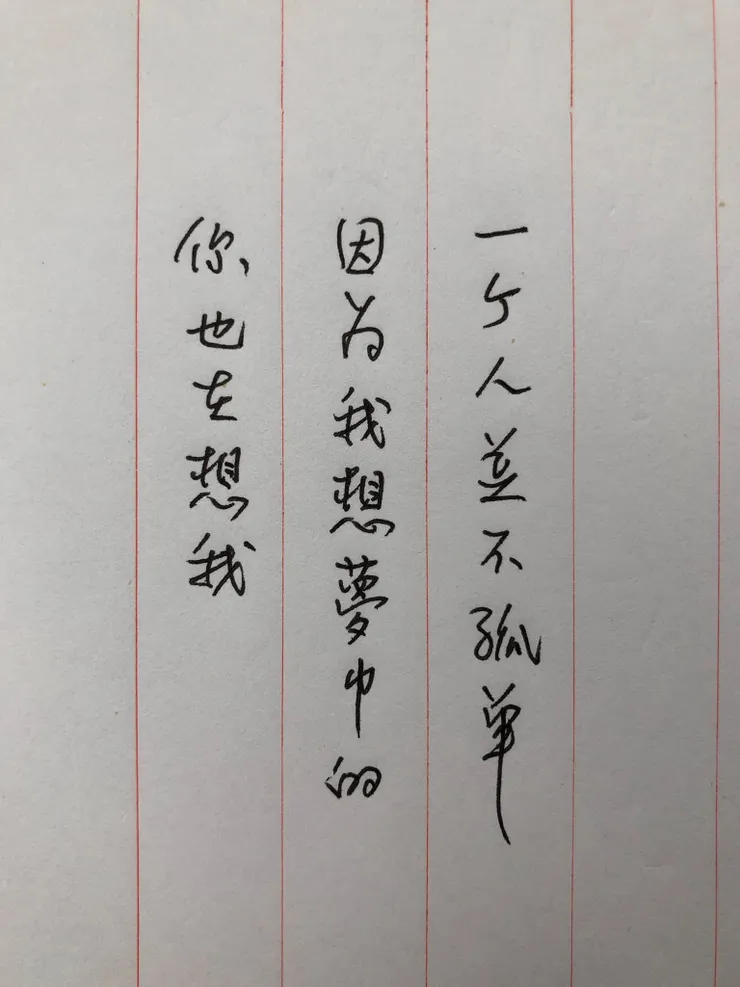 一个人并不孤单
因为我想夢中的
你也在想我